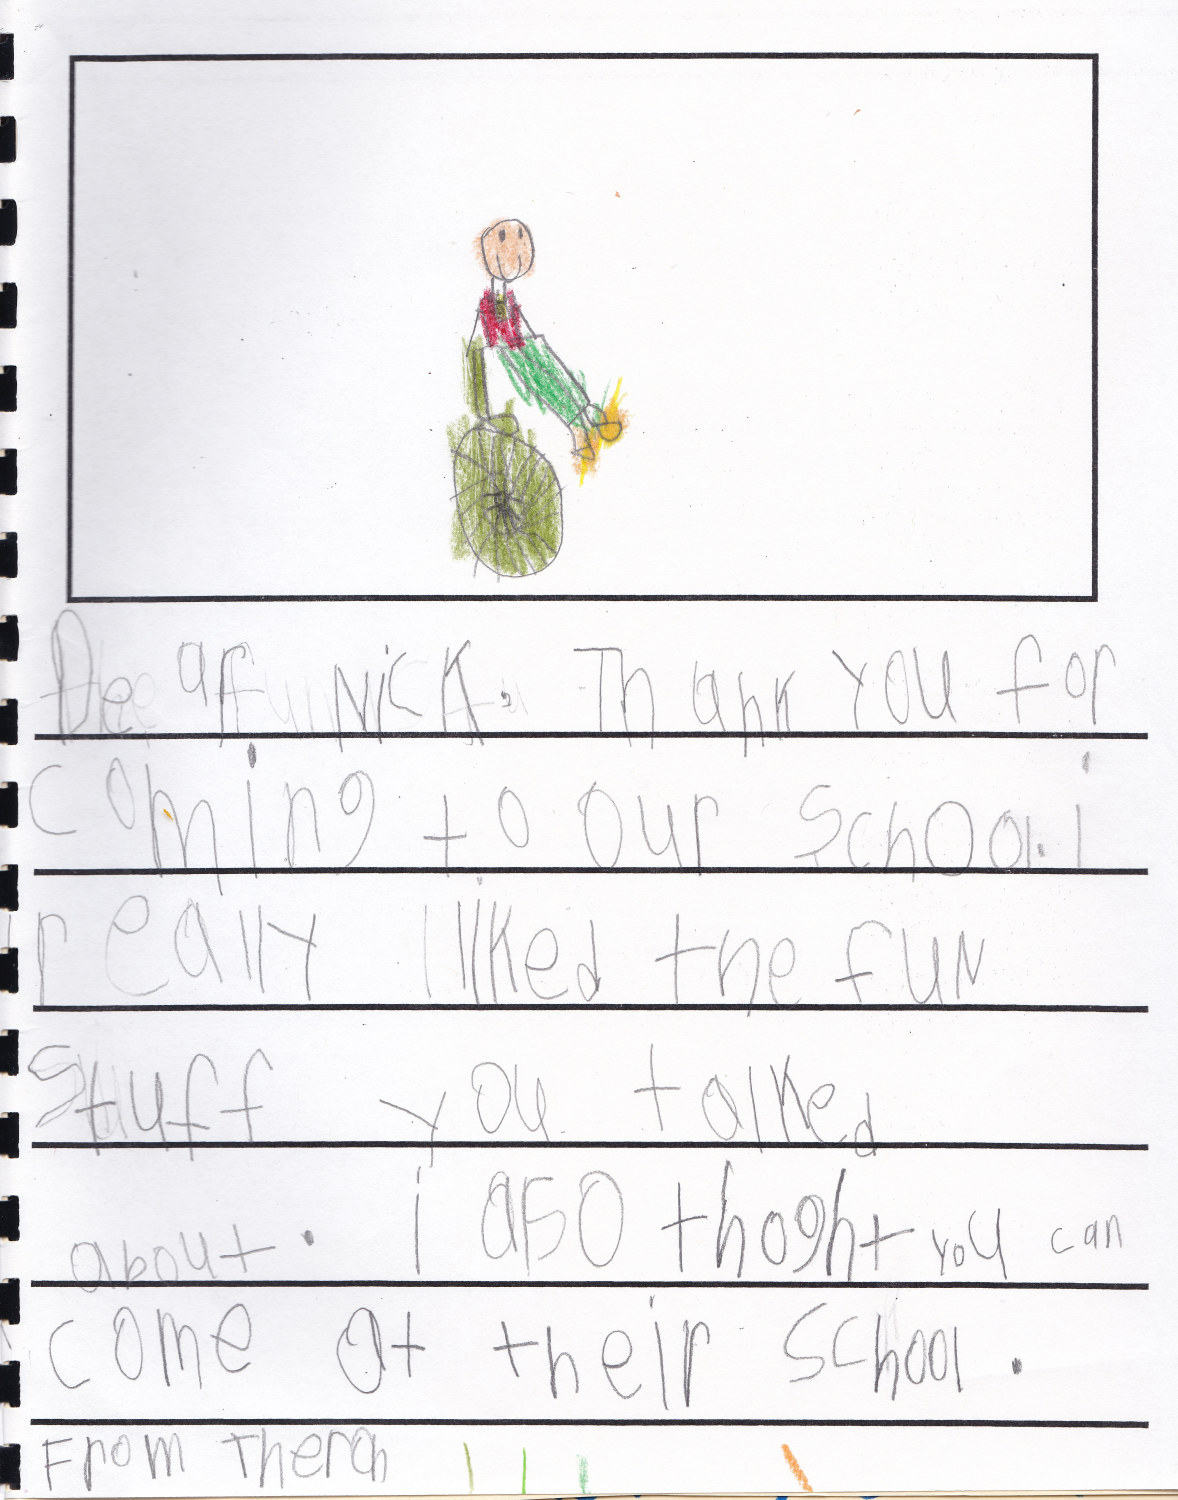 Dear Nick. Thank you for
coming to our school. i
really liked the fun
stuff you talked
about. i also thoght you can
come at their school.
From